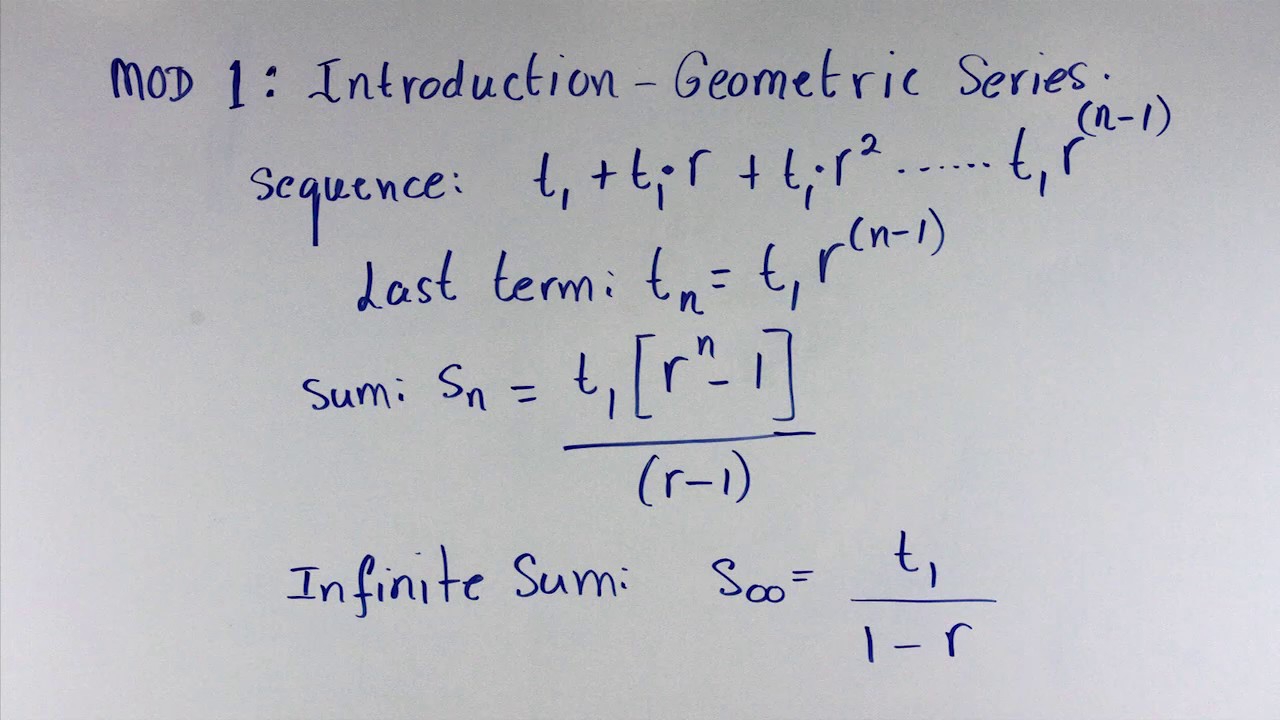 MOD 1: Introduction - Geometric Series.
Sequence: t₁ + t₁·r + t₁·r² ...... t₁r⁽ⁿ⁻¹⁾
Last term: tₙ = t₁r⁽ⁿ⁻¹⁾
Sum: Sₙ = t₁[rⁿ-1]
(r-1)
Infinite Sum: S∞ = t₁
1-r